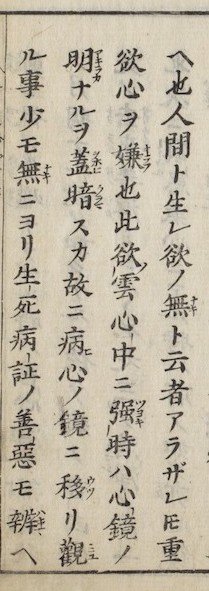 ヘ也人間ト生レ欲ノ無ト云者アラザレ𪜈重
欲心ヲ嫌也此欲雲心中ニ强時ハ心鏡ノ
明ナルヲ蓋暗スカ故ニ病心ノ鏡ニ移リ觀
ル事少モ無ニヨリ生死病証ノ善惡モ辨ヘ